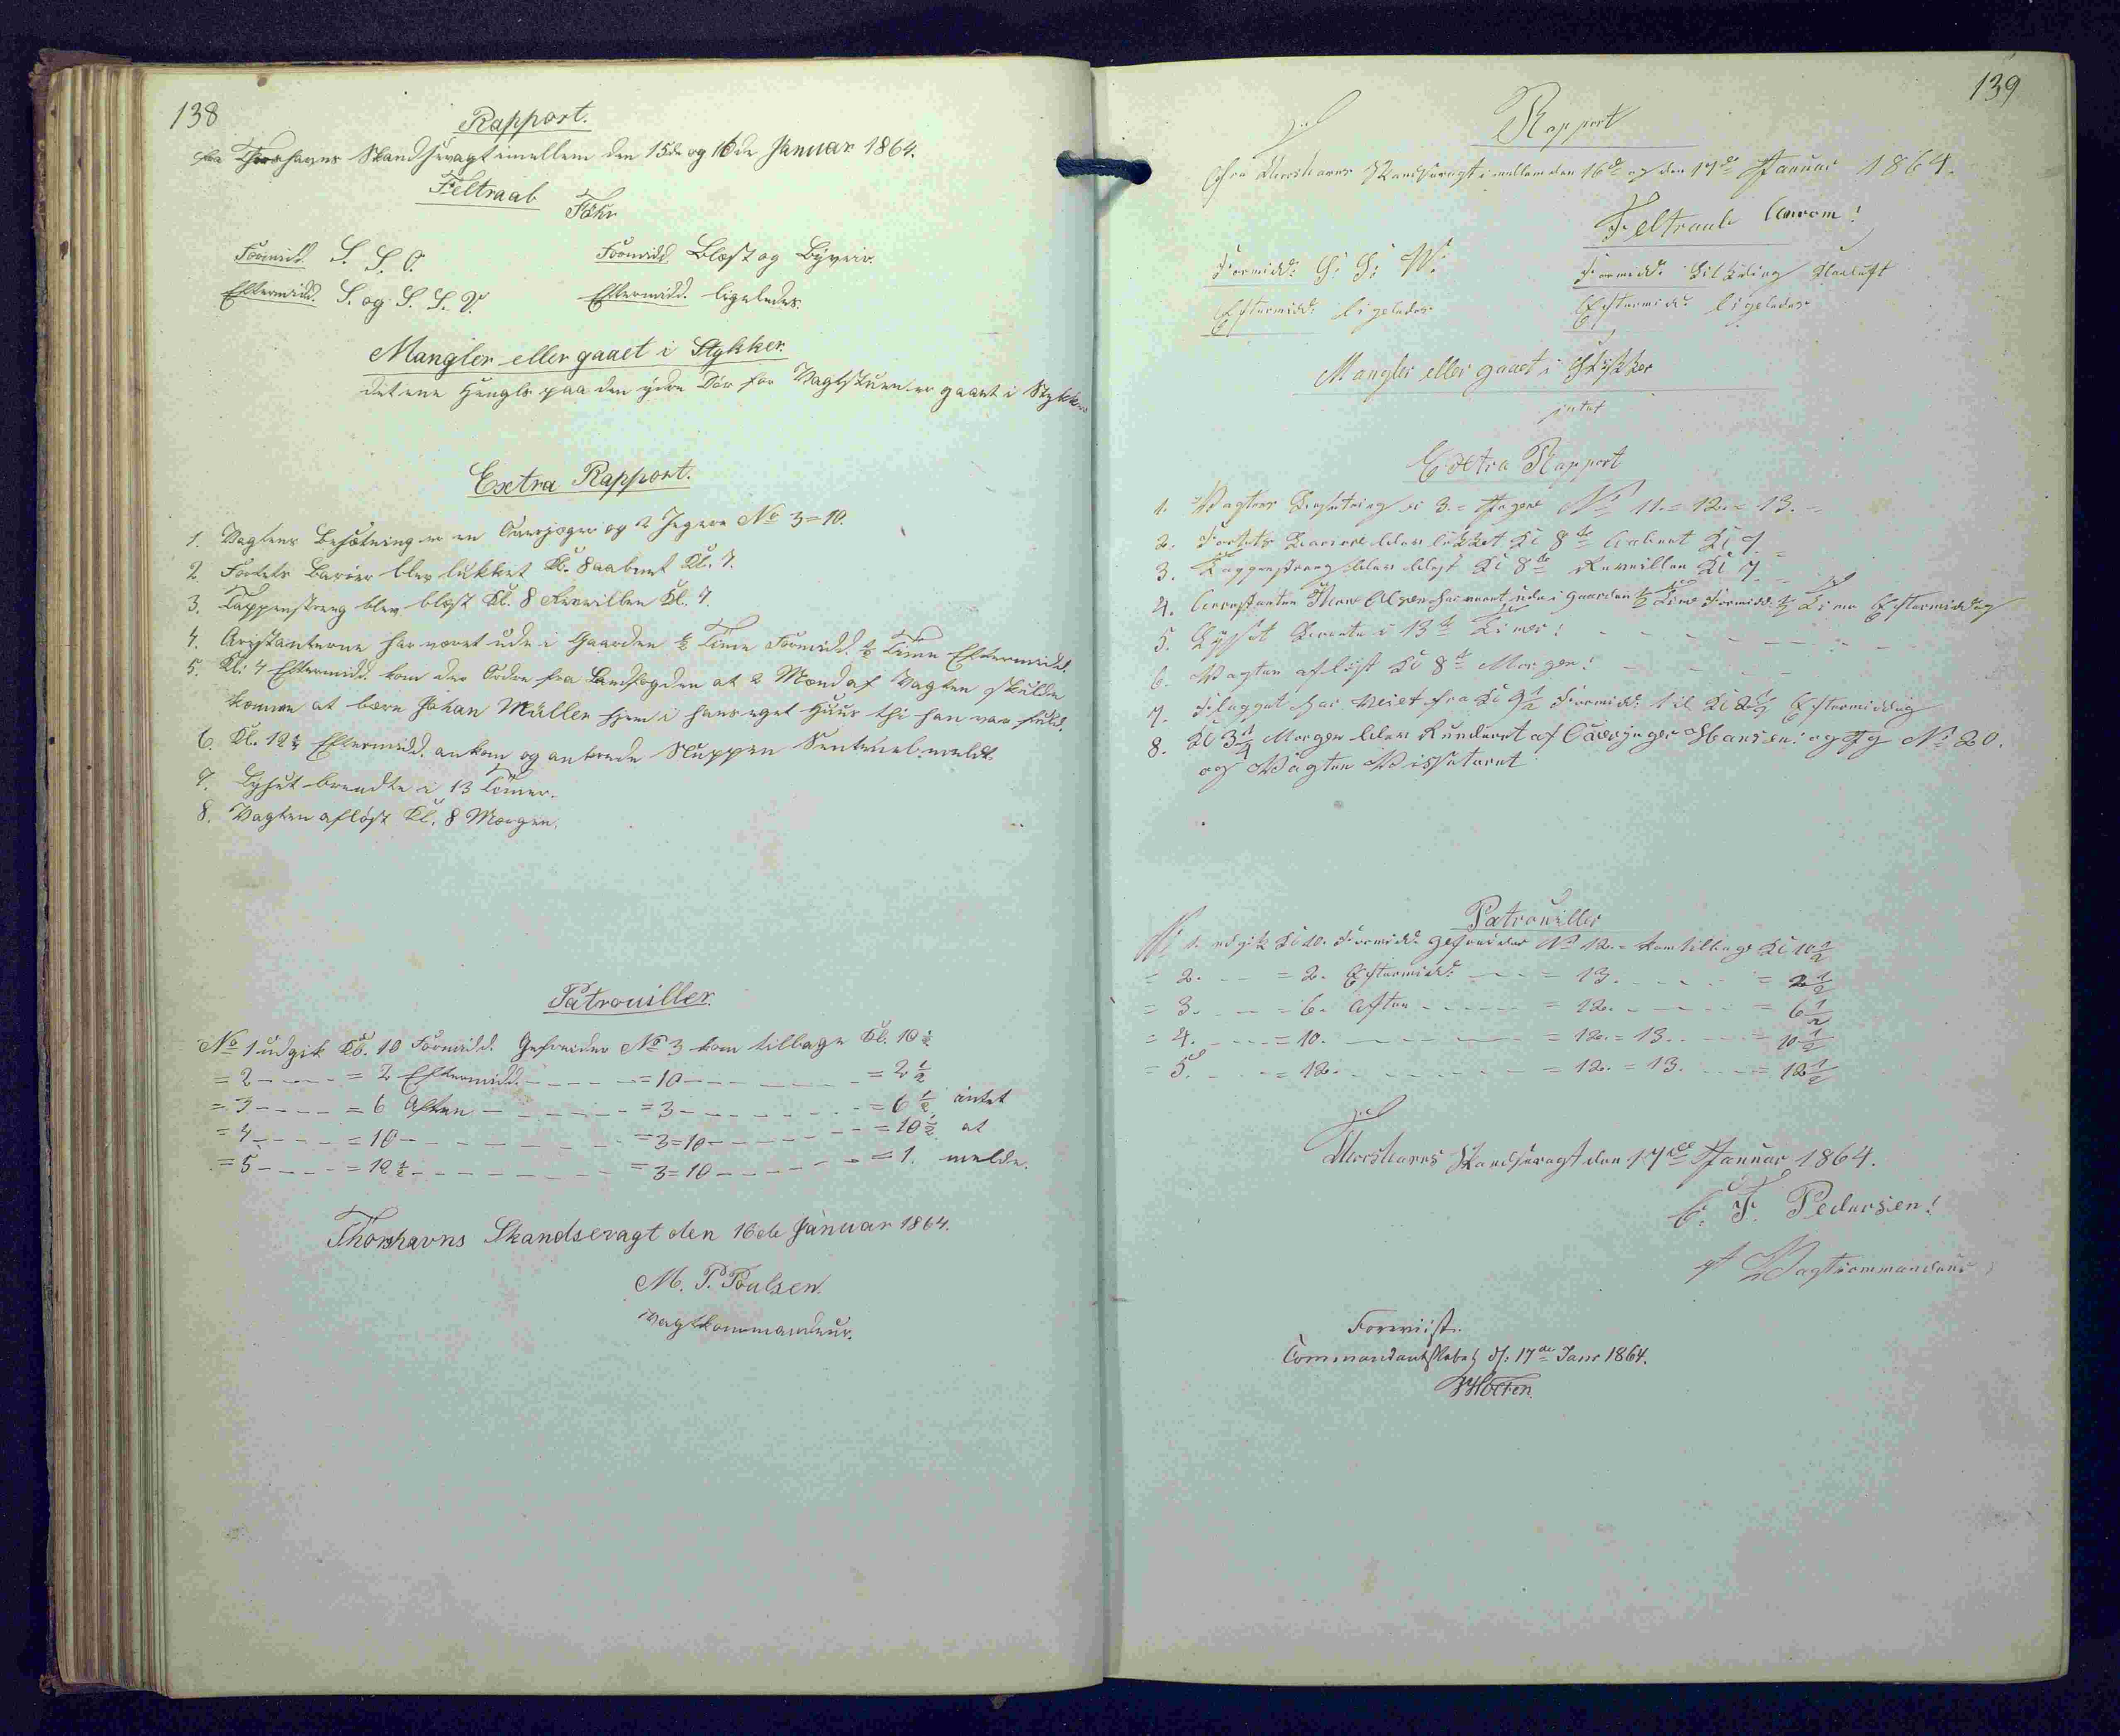 138
Rapport.
fra Thorshavns Skandsevagt imellem den 15de og 16de Januar 1864.
Feltraab
Föhr
Formidd. S. S. O.
Formidd. Blæst og Byveir.
Eftermidd. S. og S. S. V.
Eftermidd. ligeledes.
Mangler eller gaaet i Stykker.
det ene Hængle paa den ydre Dør for Vagtstuen er gaaet i Stykker
Extra Rapport.
1. Vagtens Besætning er en Overjæger og 2 Jegere No 3=10.
2. Fortets Barier blev lukket Kl. 8 aabnet Kl. 7.
3. Tappenstreng blev blæst Kl. 8 Reveillen Kl. 7.
4. Arrstanterne har været ude i Gaarden ½ Time Formidd. ½ Time Eftermidd.
5. Kl: 4 Eftermidd. kom der Ordre fra Landfogden at 2 Mand af Vagten skulde
komme at bære Johan Müller hjem i hans eget Huus thi han var fuld.
6. Kl. 12½ Eftermidd. ankom og antrede Sluppen meldt.
7. Lyset brendte i 13 Timer.
8. Vagten afløst Kl. 8 Morgen.
Patrouiller.
No 1 udgik Kl. 10 Formidd. Gefreider No 3 kom tilbage Kl. 10½
= 2 - - - = 2 Eftermidd. - - - = 10 - - - = 2½
= 3 - - - = 6 Aften - - - = 3 - - - = 6½ intet
= 4 - - - = 10 - - - = 3=10 - - - = 10½ at
= 5 - - - = 12½ - - - = 3=10 - - - = 1. melde.
Thorshavns Skandsevagt den 16de Januar 1864.
M. P. Poulsen.
Vagtkommandeur.
139
Rapport
Fra Thorshavns Skandsevagt imellem den 16de og den 17de Januar 1864.
Feltraab Amrom!
Formidd: S: S: W:
Formidd: Klarluft
Eftermidd: ligeledes
Eftermidd: ligeledes
Mangler eller gaaet i Stykker
intet
Extra Rapport
1. Vagtens Besetning er 3 = Jegere No 11.=12.=13.
2. Fortets Bariere blev lukket Kl 8te Aabnet Kl 7.
3. Tappenstreng blev blest Kl 8te Reveillen Kl 7.
4. Arrestanten Olsen har veret ude i Gaarden ½ Time Formidd: ½ Time Eftermiddag
5. Lyset Brente i 13 Timer!
6. Vagten aflöst Kl 8te Morgen!
7. Flagget har Veiet fra Kl 9½ Formidd: til Kl Eftermiddag
8. Kl 3¼ Morgen blev Runderet af Overjeger Hansen: og Jg No 20.
og Vagten Visseteret
Patrouiller
No 1. udgik Kl 10. Formidd: Gefreider No 12. = kom tilbage Kl 10½
= 2. - - = 2. Eftermidd: - - = 13. - - = 2½
= 3. - - = 6. Aften - - - = 12. - - = 6½
= 4. - - = 10. - - - = 12.=13. - - = 10½
= 5. - - = 12. - - - = 12.=13. - - = 12½
Thorshavns Skandsevagt den 17de Januar 1864.
C. F. Pedersen!
Vagtcommandeur
Foreviist.
Commandantskabet d: 17de Janr 1864.